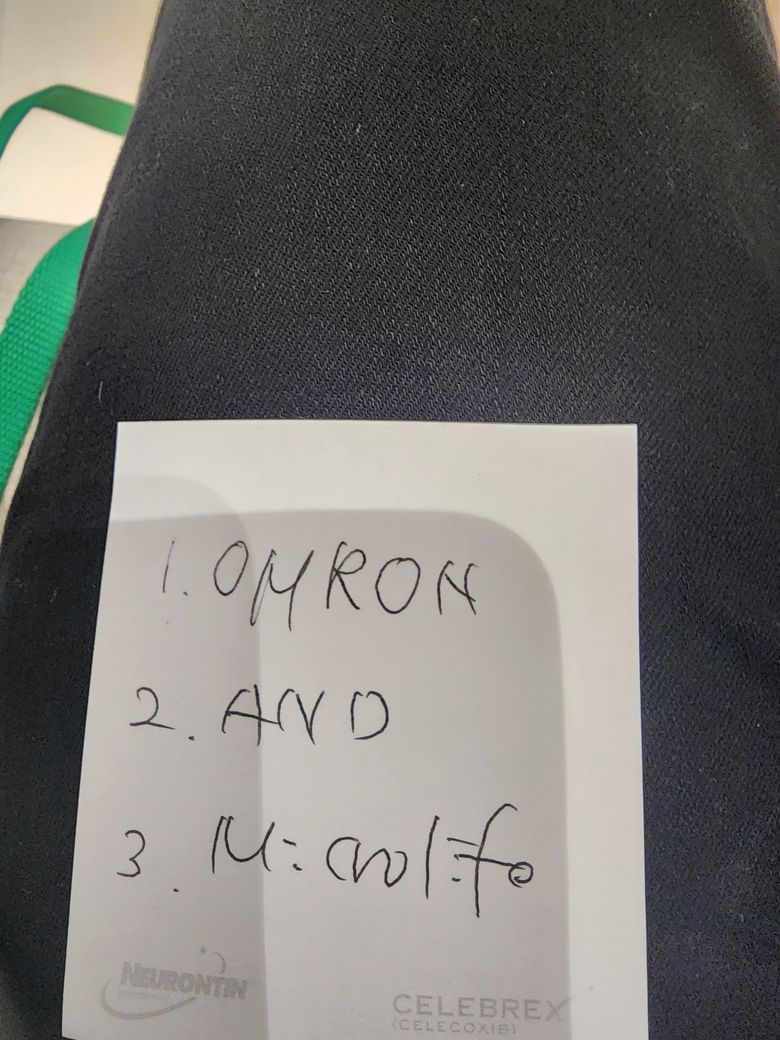 1. OMRON
2. AND
3. Microlife
NEURONTIN
CELEBREX
(CELECOXIB)